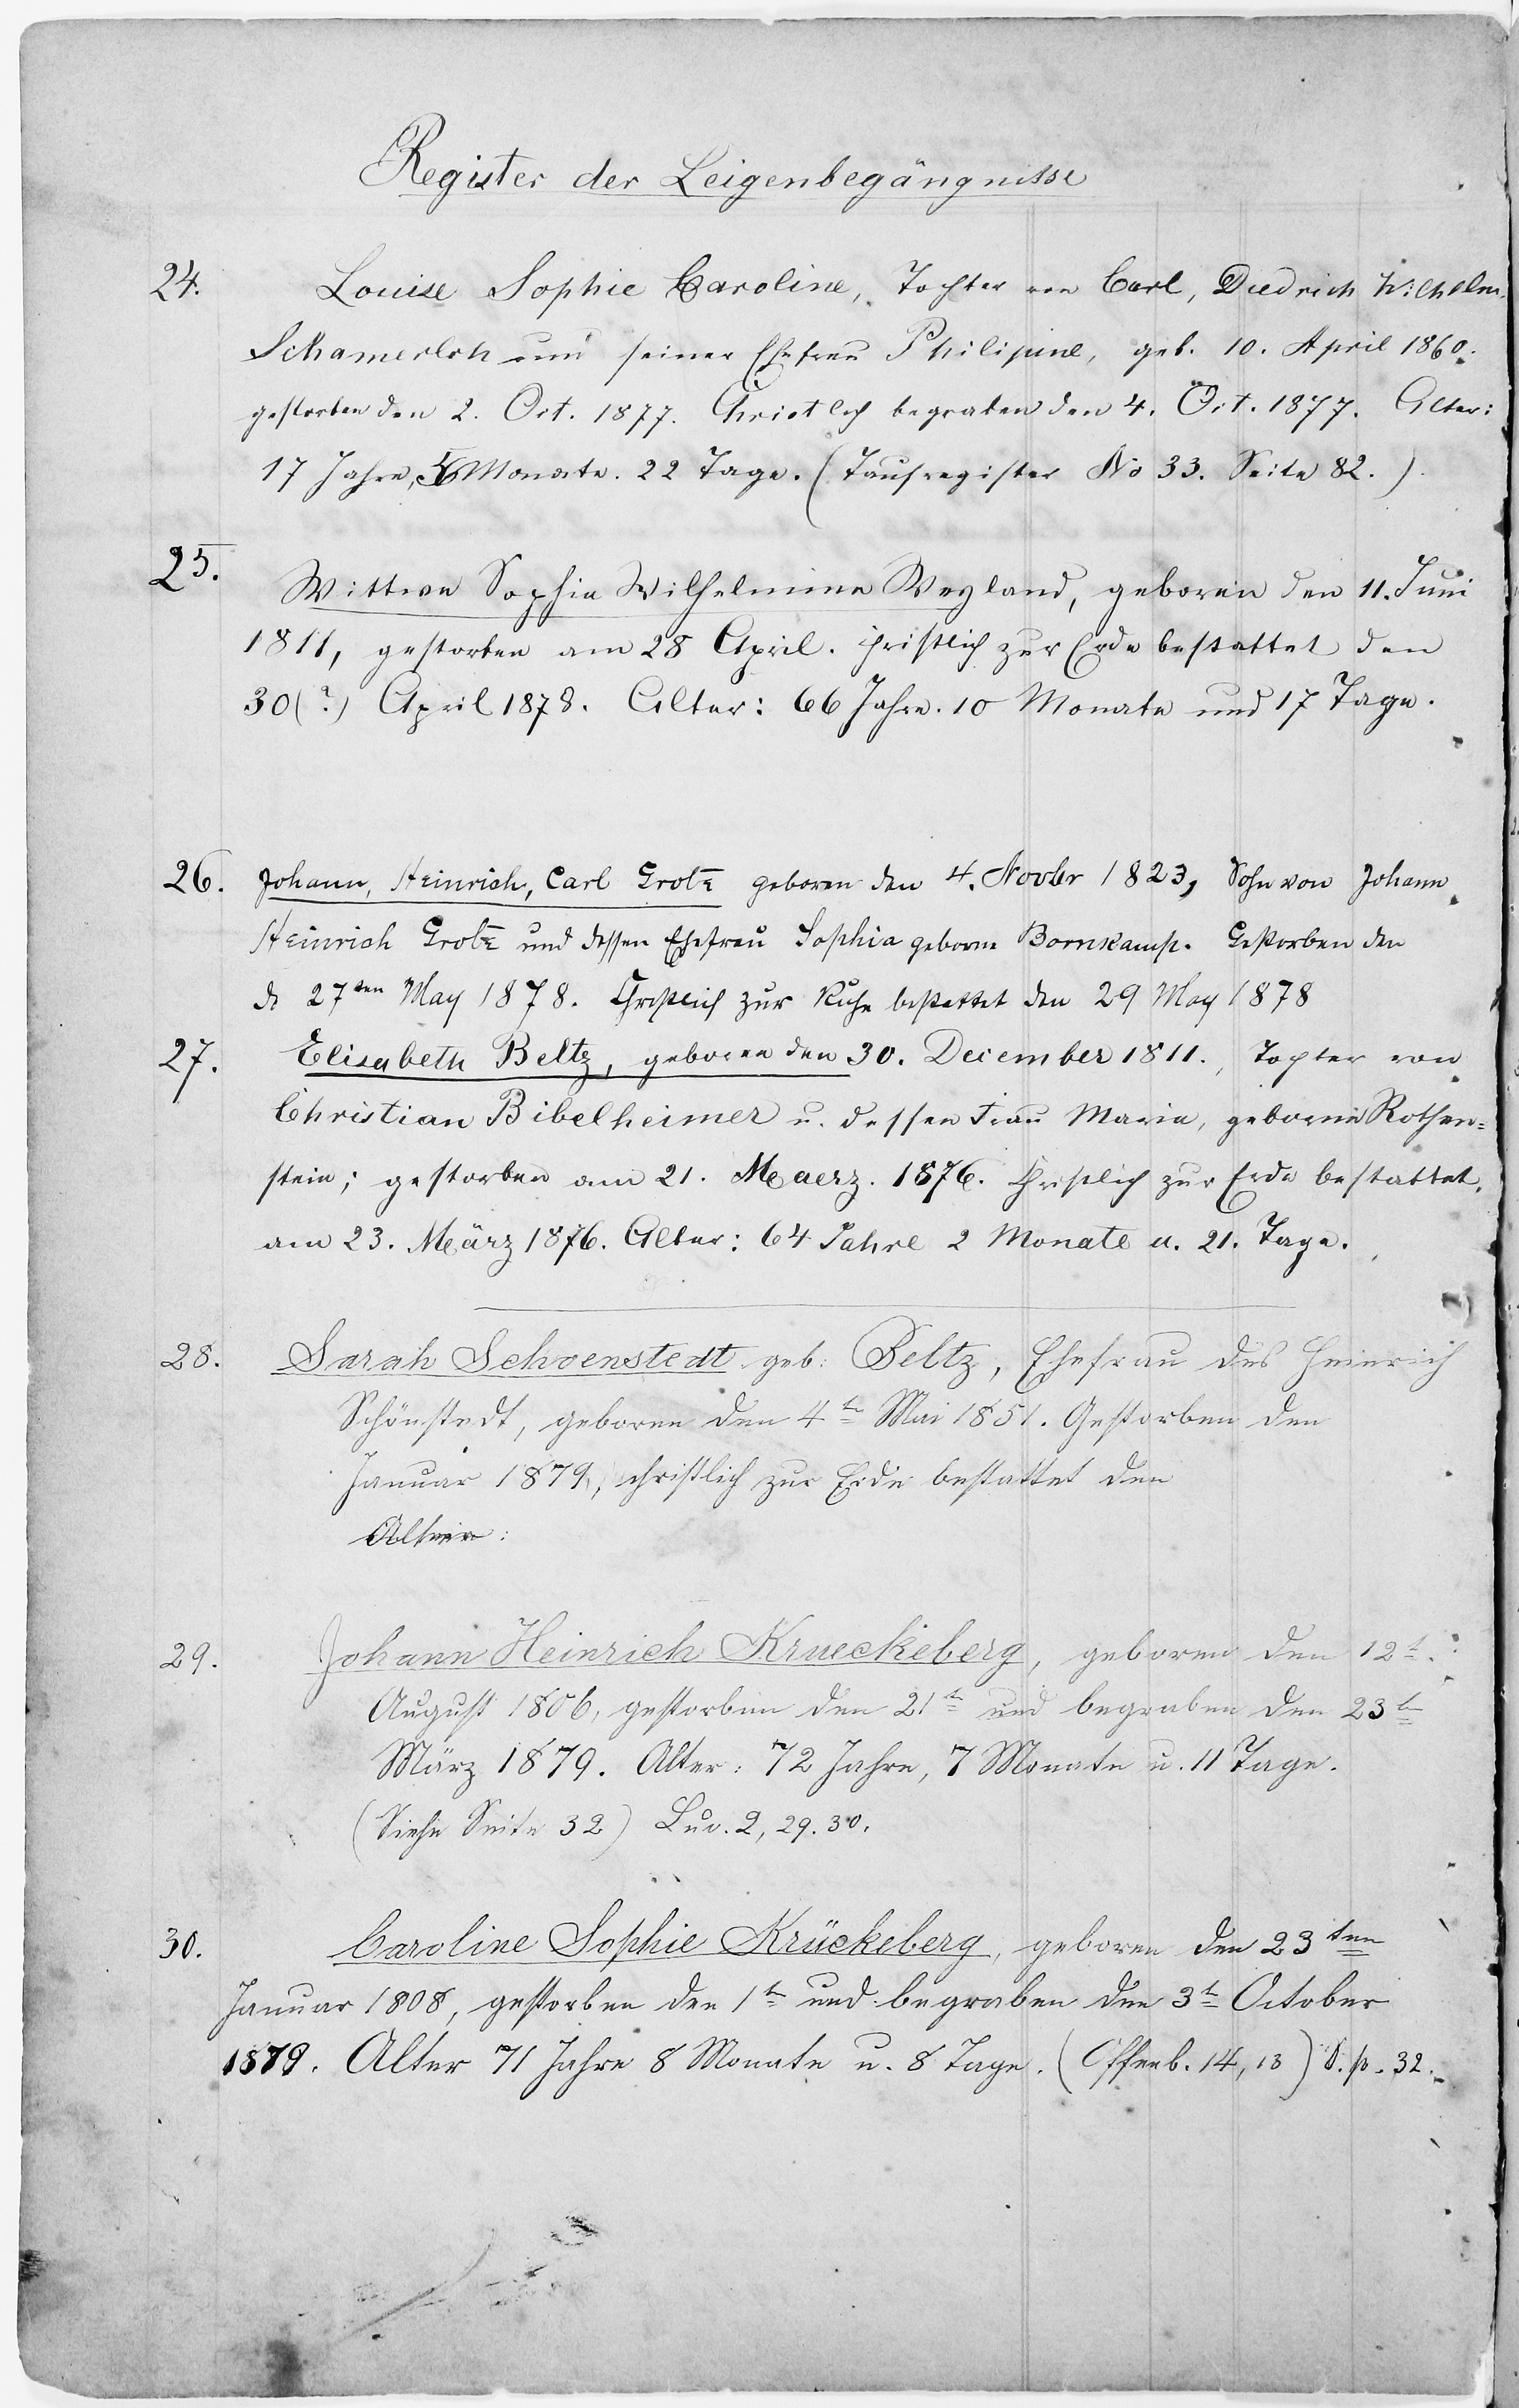 Register der Leigenbegängnisse
24. Louise Sophie Caroline, Tochter von Carl, Diedrich Wilhelm
Schamerloh und seiner Ehefrau Philipine, geb. 10. April 1860.
gestorben den 2. Oct. 1877. Christlich begraben den 4. Oct. 1877. Alter:
17 Jahre, Monate. 22 Tage. (Taufregister No 33. Seite 82.)
25. Wittwe Sophie Wilhelmine Weyland, geboren den 11. Juni
1811, gestorben am 28 April. christlich zur Erde bestattet den
30(?) April 1878. Alter: 66 Jahre. 10 Monate und 17 Tage.
26. Johann, Heinrich, Carl Grote geboren den 4. Novbr 1823, Sohn von Johann
Heinrich Grote und dessen Ehefrau Sophia geborne Bornkamp. Gestorben den
d 27ten May 1878. Christlich zur Ruhe bestattet den 29 May 1878
27. Elisabeth Beltz, geboren den 30. December 1811., Tochter von
Christian Bibelheimer u. dessen Frau Maria, geborne Rothen=
stein; gestorben am 21. Maerz. 1876. Christlich zur Erde bestattet.
am 23. März 1876. Alter: 64 Jahre 2 Monate u. 21. Tage.
28. Sarah Schoenstedt geb: Beltz, Ehefrau des Heinrich
Schönstedt, geboren den 4t Mai 1851. Gestorben den
Januar 1879, christlich zur Erde bestattet den
Alter:
29. Johann Heinrich Krueckeberg, geboren den 12t.
August 1806, gestorben den 21t und begraben den 23t
März 1879. Alter: 72 Jahre, 7 Monate u. 11 Tage.
(Siehe Seite 32) Luc. 2, 29. 30.
30. Caroline Sophie Krückeberg, geboren den 23ten
Januar 1808, gestorben den 1t und begraben den 3t October
1879. Alter 71 Jahre 8 Monate u. 8 Tage. (Offenb. 14, 13) S. p. 32.